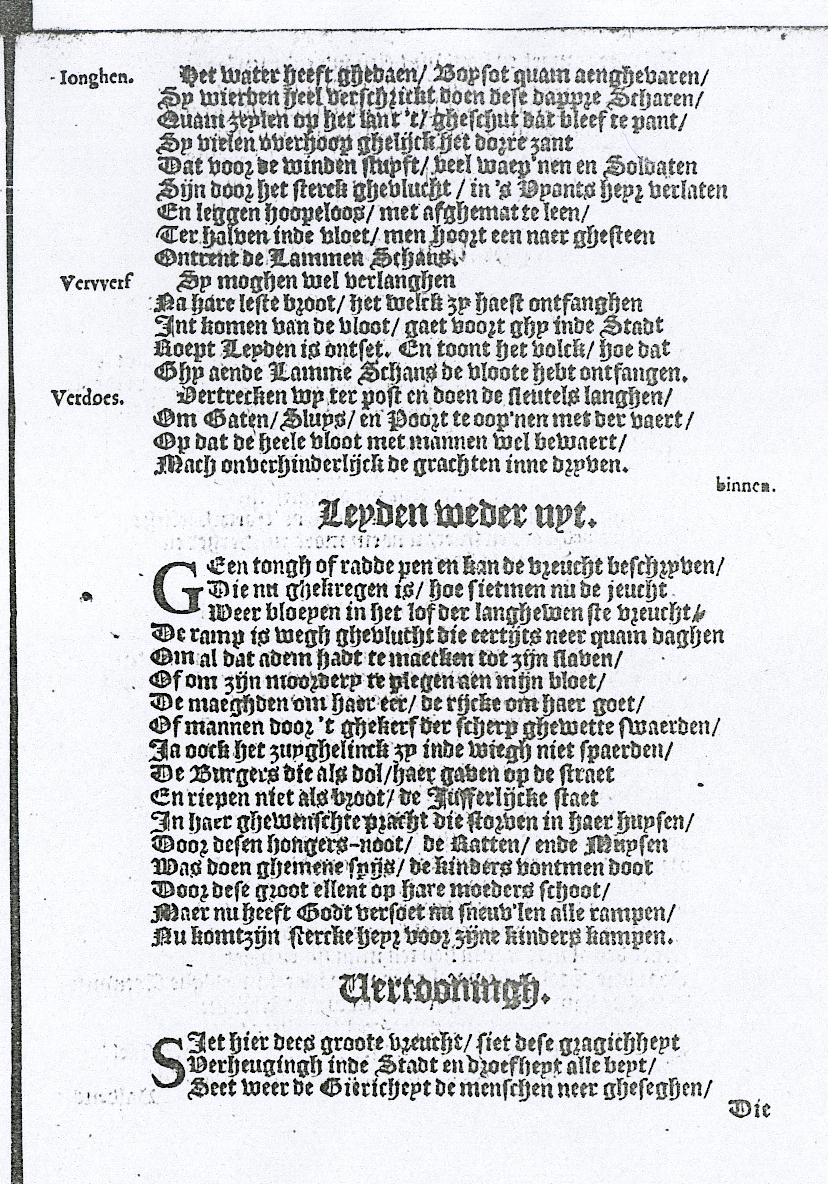 Ionghen. Het water heeft ghedaen/ Boysot quam aenghevaren/
Sy wierden heel verschrickt doen dese dappre Scharen/
Quam zeylen op het lant 't/ gheschut dat bleef te pant/
Sy vielen overhoop ghelijck het dorre zant
Dat voor de winden stuyft/ veel waep'nen en Soldaten
Sijn door het sterck ghevlucht / in 's Vyants heyr verlaten
En leggen hoopeloos/ met afghematte leen/
Ter halven inde vloet/ men hoort een naer ghesteen
Ontrent de Lammen Schans.
Vervverf Sy moghen wel verlanghen
Na hare leste broot/ het welck zy haest ontfanghen
Int komen van de vloot/ gaet voort ghy inde Stadt
Roept Leyden is ontset. En toont het volck/ hoe dat
Ghy aende Lamme Schans de vloote hebt ontfangen.
Verdoes. Vertrecken wy ter post en doen de sleutels langhen/
Om Gaten/ Sluys/ en Poort te oop'nen met der vaert/
Op dat de heele vloot met mannen wel bewaert/
Mach onverhinderlijck de grachten inne dryven.
binnen.
Leyden weder uyt.
GEen tongh of radde pen en kan de vreucht beschryven/
Die nu ghekregen is/ hoe sietmen nu de jeucht
Weer bloeyen in het lof der langhewenste vreucht/
De ramp is wegh ghevlucht die eertijts neer quam daghen
Om al dat adem hadt te maecken tot zijn slaven/
Of om zijn moordery te plegen aen mijn bloet/
De maeghden om haer eer/ de rijcke om haer goet/
Of mannen door 't ghekerf der scherp ghewette swaerden/
Ja oock het zuyghelinck zy inde wiegh niet spaerden/
De Burgers die als dol/haer gaven op de straet
En riepen niet als broot/ de Jufferlijcke staet
In haer ghewenschte pracht die storven in haer huysen/
Door desen hongers-noot/ de Katten/ ende Muysen
Was doen ghemene spijs/ de kinders vontmen doot
Door dese groot ellent op hare moeders schoot/
Maer nu heeft Godt versoet nu sneuv'len alle rampen/
Nu komtzijn stercke heyr voor zijne kinders kampen.
Vertooningh.
SIet hier dees groote vreucht/ siet dese gragichheyt
Verheugingh inde Stadt en droefheyt alle beyt/
Seet weer de Gierichept de menschen neer gheseghen/
Die